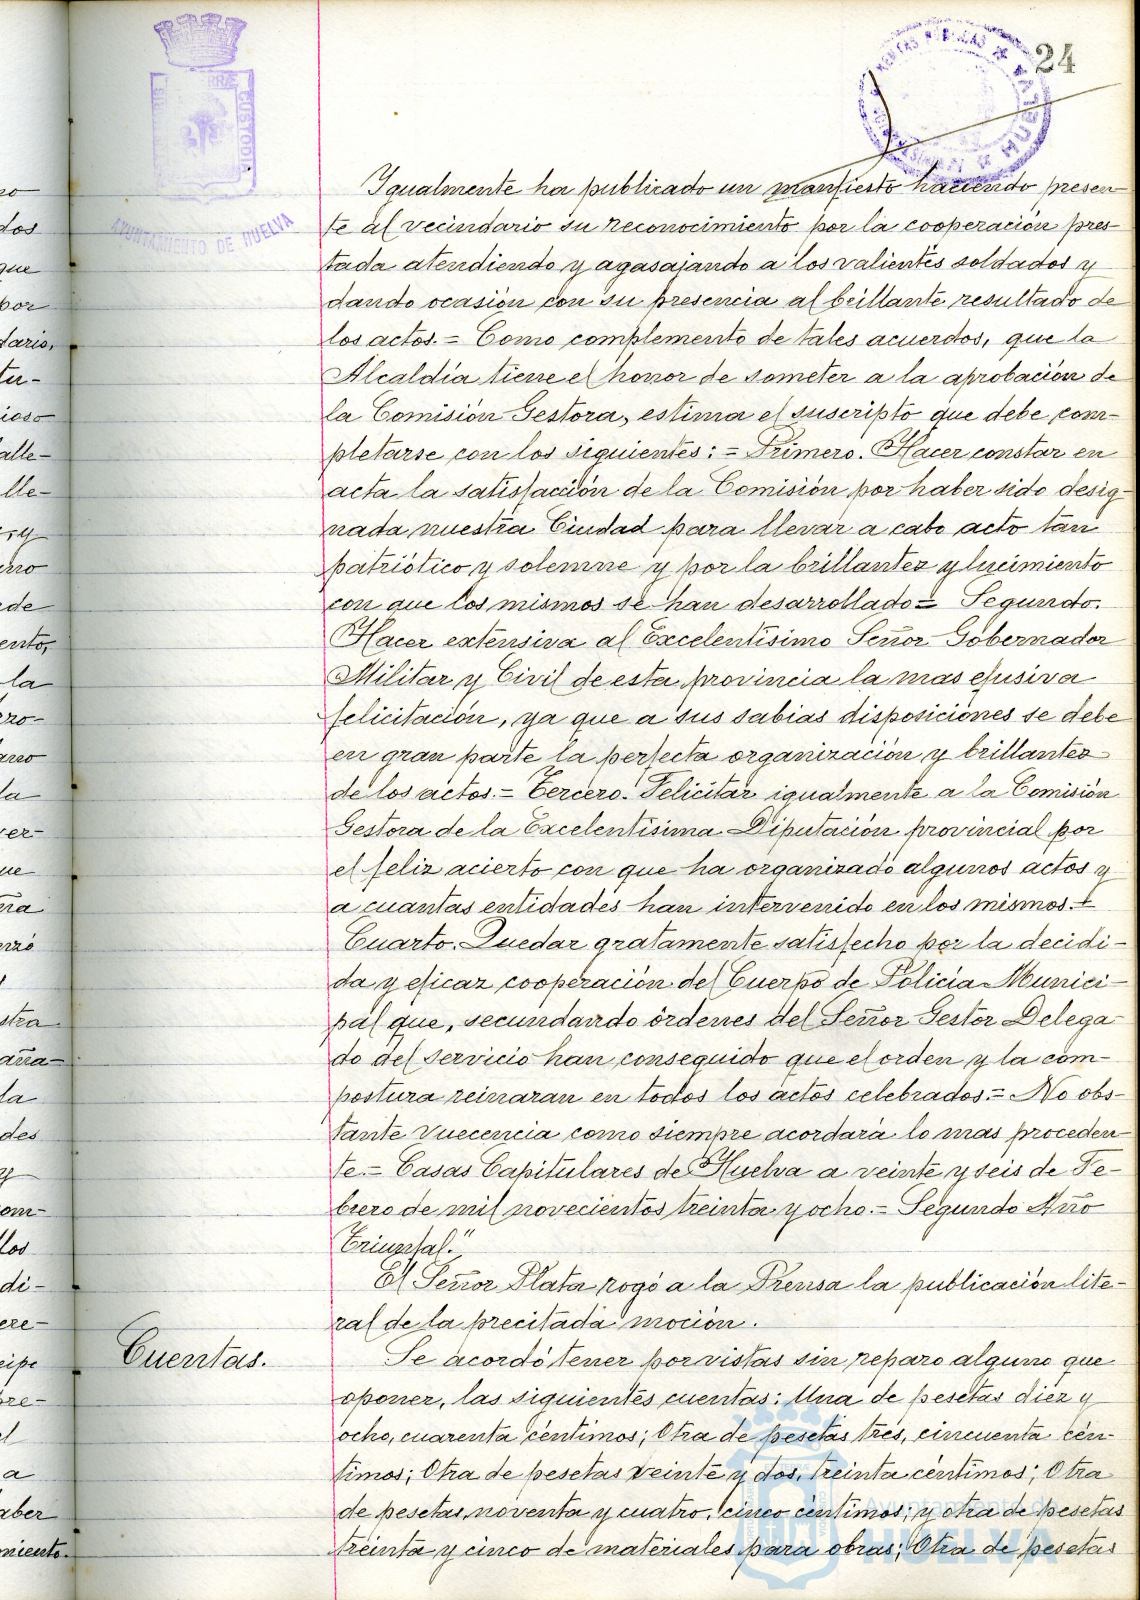 24
AYUNTAMIENTO DE HUELVA
CUSTODI
HUELVA
Igualmente ha publicado un manifiesto haciendo presen-
te al vecindario su reconocimiento por la cooperación pres-
tada atendiendo y agasajando a los valientes soldados y
dando ocasión con su presencia al brillante resultado de
los actos.= Como complemento de tales acuerdos, que la
Alcaldía tiene el honor de someter a la aprobación de
la Comisión Gestora, estima el suscripto que debe com-
pletarse con los siguientes:= Primero. Hacer constar en
acta la satisfacción de la Comisión por haber sido desig-
nada nuestra Ciudad para llevar a cabo acto tan
patriótico y solemne y por la brillantez y lucimiento
con que los mismos se han desarrollado= Segundo.
Hacer extensiva al Excelentísimo Señor Gobernador
Militar y Civil de esta provincia la mas efusiva
felicitación, ya que a sus sabias disposiciones se debe
en gran parte la perfecta organización y brillantez
de los actos.= Tercero. Felicitar igualmente a la Comisión
Gestora de la Excelentísima Diputación provincial por
el feliz acierto con que ha organizado algunos actos y
a cuantas entidades han intervenido en los mismos.=
Cuarto. Quedar gratamente satisfecho por la decidi-
da y eficaz cooperación del Cuerpo de Policía Munici-
pal que, secundando órdenes del Señor Gestor Delega-
do del servicio han conseguido que el orden y la com-
postura reinaran en todos los actos celebrados.= No obs-
tante Vuecencia como siempre acordará lo mas proceden-
te.= Casas Capitulares de Huelva a veinte y seis de Fe-
brero de mil novecientos treinta y ocho.= Segundo Año
Triunfal."
El Señor Plata rogó a la Prensa la publicación lite-
ral de la precitada moción.
Cuentas.
Se acordó tener por vistas sin reparo alguno que
oponer, las siguientes cuentas: Una de pesetas diez y
ocho, cuarenta céntimos; Otra de pesetas tres, cincuenta cén-
timos; Otra de pesetas veinte y dos, treinta céntimos; Otra
de pesetas noventa y cuatro, cinco céntimos; y otra de pesetas
treinta y cinco de materiales para obras; Otra de pesetas
Ayuntamiento de
HUELVA